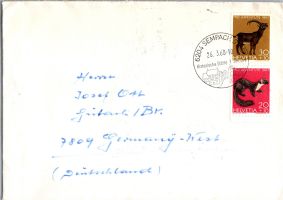 6204 SEMPACH
26.3.68-10
Historische Stätte
PRO JUVENTUTE 1967
10
+10
HELVETIA
20
+10
HELVETIA
Herrn
Josef Ott
Gutach i/Br.
7809 Germany-West
(Deutschland)